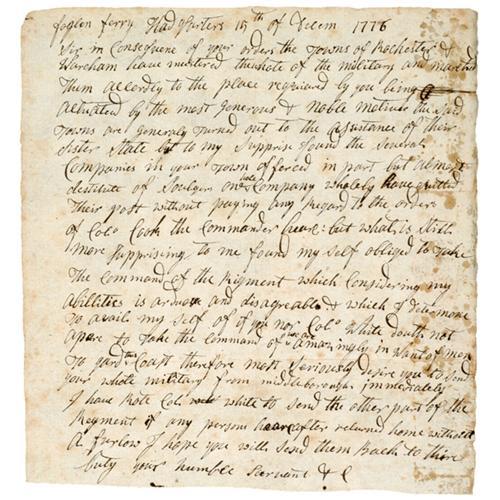 foglen ferry Head Qarters 15th of Decem 1776
Sir in Consequene of your orders the Towns of Rochester &
Wareham have mustered the whole of the military and marched
Them accordly to the place required by you being
actuated by the most generous & noble motives the said
Towns are Generaly turned out to the assistance of their
Sister State but to my Supprise found the Several
Companies in your Town officered in part but almost
destitute of Soulgers one whole Company wholely have quitted
Their post without paying any Regard to the orders
of Colo Cook the Commander heare: but what is Still
more Supprising to me found my Self obliged to take
The Command of the Rigment which Considering my
abillities is arduous and disagreable & which I determone
To avail my Self of if you nor Colo White douth not
apare to take the Command of we are amaxingly in want of men
To gard the Coast therefore most Seriously desire you to Send
your whole military from middleborough immediately
I have Rote Colo White to Send the other part of the
Regment if any persons heareafter returned home without
A furlow I hope you will Send them Back to there
Duty your humble Servant & C